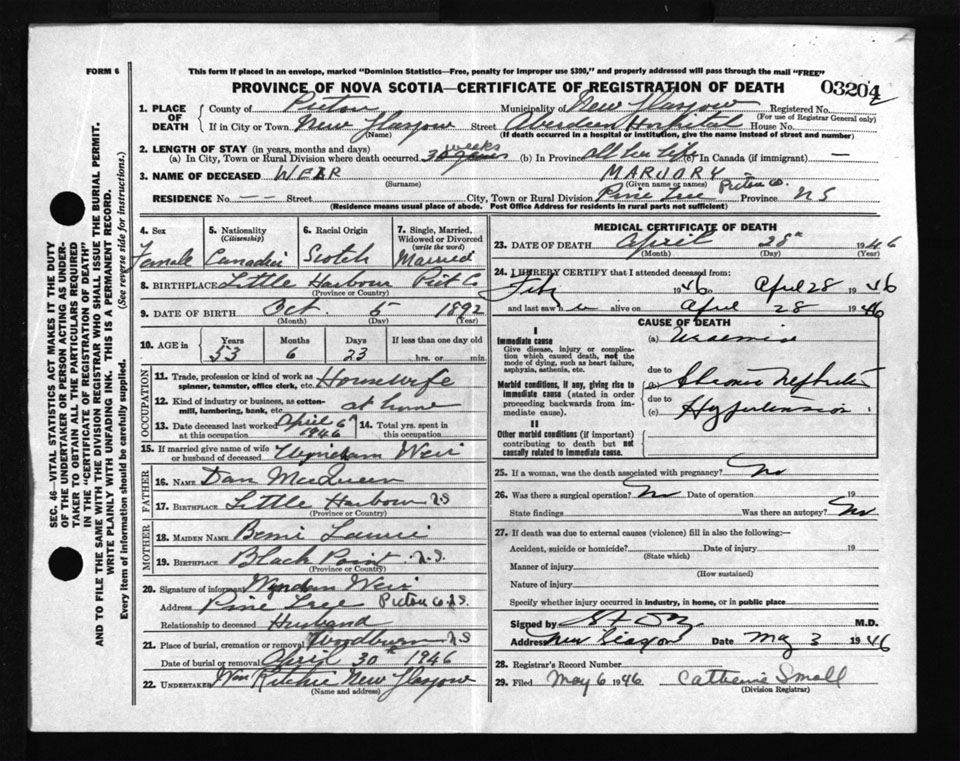 FORM 6
This form if placed in an envelope, marked "Dominion Statistics—Free, penalty for improper use $300," and properly addressed will pass through the mail "FREE"
PROVINCE OF NOVA SCOTIA—CERTIFICATE OF REGISTRATION OF DEATH 03204
1. PLACE OF DEATH County of Pictou Municipality of New Glasgow Registered No.
(For use of Registrar General only)
If in City or Town New Glasgow Street Aberdeen Hospital House No.
(Name) (If death occurred in a hospital or institution, give the name instead of street and number)
2. LENGTH OF STAY (in years, months and days)
(a) In City, Town or Rural Division where death occurred weeks (b) In Province All her Life (c) In Canada (if immigrant) —
3. NAME OF DECEASED WEIR MARJORY
(Surname) (Given name or names)
RESIDENCE No. — Street City, Town or Rural Division Pine Tree Pictou Co. Province NS
(Residence means usual place of abode. Post Office Address for residents in rural parts not sufficient)
SEC. 46—VITAL STATISTICS ACT MAKES IT THE DUTY
OF THE UNDERTAKER OR PERSON ACTING AS UNDER-
TAKER TO OBTAIN ALL THE PARTICULARS REQUIRED
IN THE "CERTIFICATE OF REGISTRATION OF DEATH"
AND TO FILE THE SAME WITH THE DIVISION REGISTRAR WHO SHALL ISSUE THE BURIAL PERMIT.
WRITE PLAINLY WITH UNFADING INK. THIS IS A PERMANENT RECORD.
Every item of information should be carefully supplied. (See reverse side for instructions.)
4. Sex Female
5. Nationality (Citizenship) Canadian
6. Racial Origin Scotch
7. Single, Married, Widowed or Divorced (write the word) Married
8. BIRTHPLACE Little Harbour Pict Co
(Province or Country)
9. DATE OF BIRTH Oct. 5 1892
(Month) (Day) (Year)
10. AGE in Years Months Days If less than one day old
53 6 23 hrs. or min.
OCCUPATION
11. Trade, profession or kind of work as spinner, teamster, office clerk, etc. Housewife
12. Kind of industry or business, as cotton-mill, lumbering, bank, etc. at home
13. Date deceased last worked at this occupation April 6 1946
14. Total yrs. spent in this occupation
15. If married give name of wife or husband of deceased Wyndham Weir
FATHER
16. NAME Dan McQueen
17. BIRTHPLACE Little Harbour N.S.
(Province or Country)
MOTHER
18. MAIDEN NAME
19. BIRTHPLACE Black Point N.S.
(Province or Country)
20. Signature of informant Wyndham Weir
Address Pine Tree Pictou Co N.S.
Relationship to deceased Husband
21. Place of burial, cremation or removal Woodburn N.S
Date of burial or removal April 30th 1946
22. UNDERTAKER Wm Ritchie New Glasgow
(Name and address)
MEDICAL CERTIFICATE OF DEATH
23. DATE OF DEATH April 28th 1946
(Month) (Day) (Year)
24. I HEREBY CERTIFY that I attended deceased from:
Feby 1946 to April 28 1946
and last saw h er alive on April 28 1946
CAUSE OF DEATH
I
Immediate cause
Give disease, injury or complication which caused death, not the mode of dying, such as heart failure, asphyxia, asthenia, etc.
(a) Uraemia
due to
Morbid conditions, if any, giving rise to immediate cause (stated in order proceeding backwards from immediate cause).
(b) Chronic Nephritis
due to
(c) Hypertension
II
Other morbid conditions (if important) contributing to death but not causally related to immediate cause.
25. If a woman, was the death associated with pregnancy? No
26. Was there a surgical operation? No Date of operation 19
State findings Was there an autopsy? No
27. If death was due to external causes (violence) fill in also the following:—
Accident, suicide or homicide? Date of injury 19
(State which)
Manner of injury
(How sustained)
Nature of injury
Specify whether injury occurred in industry, in home, or in public place
Signed by M.D.
Address New Glasgow Date May 3 1946
28. Registrar's Record Number
29. Filed May 6 1946 Catherine Small
(Division Registrar)